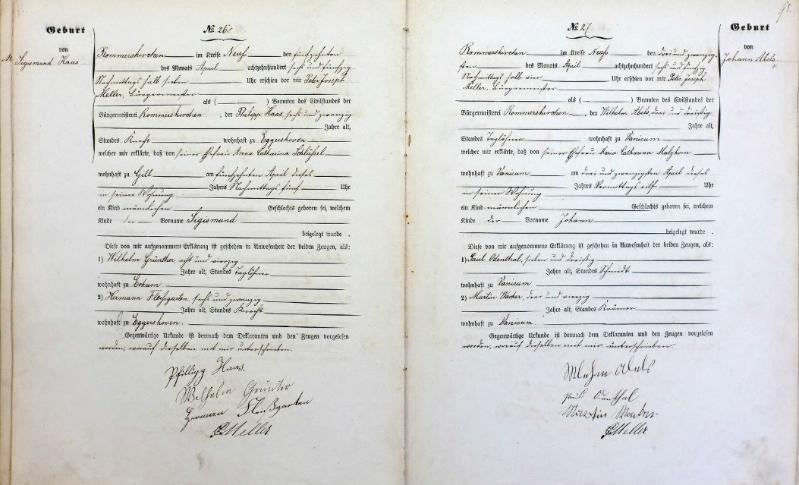 Geburt
von
Sigismund Haas
№ 26
Rommerskirchen im Kreise Neuß den fünfzehnten
des Monats April achtzehnhundert sechs und fünfzig
Nachmittags halb sieben Uhr erschien vor mir Peter Joseph
Meller, Bürgermeister
als ( ) Beamten des Civilstandes der
Bürgermeisterei Rommerskirchen, der Philipp Haas, sechs und zwanzig
Jahre alt,
Standes Knecht wohnhaft zu Eggershoven
welcher mir erklärte, daß von seiner Ehefrau Anna Catharina
wohnhaft zu Gill am fünfzehnten April dieses
Jahres Nachmittags fünf Uhr
in seiner Wohnung
ein Kind männlichen Geschlechts geboren sei, welchem
Kinde der Vorname Sigismund
beigelegt wurde.
Diese von mir aufgenommene Erklärung ist geschehen in Anwesenheit der beiden Zeugen, als:
1) Wilhelm Grünther acht und vierzig
Jahre alt, Standes Taglöhner
wohnhaft zu
2) Hermann sechs und zwanzig
Jahre alt, Standes Knecht
wohnhaft zu Eggershoven
Gegenwärtige Urkunde ist demnach dem Deklaranten und den Zeugen vorgelesen
worden, worauf dieselben mit mir unterschrieben.
Philipp Haas
Wilhelm Grünter
Hermann
Meller
Geburt
von
Johann Abels
№ 27
Rommerskirchen im Kreise Neuß den drei und zwanzig
sten des Monats April achtzehnhundert sechs und fünfzig
Nachmittags halb vier Uhr erschien vor mir Peter Joseph
Meller, Bürgermeister
als ( ) Beamten des Civilstandes der
Bürgermeisterei Rommerskirchen, der Wilhelm Abels, drei und dreißig
Jahre alt,
Standes Taglöhner wohnhaft zu Vanicum
welcher mir erklärte, daß von seiner Ehefrau Anna Catharina
wohnhaft zu Vanicum am drei und zwanzigsten April dieses
Jahres Vormittags elf Uhr
in seiner Wohnung
ein Kind männlichen Geschlechts geboren sei, welchem
Kinde der Vorname Johann
beigelegt wurde.
Diese von mir aufgenommene Erklärung ist geschehen in Anwesenheit der beiden Zeugen, als:
1) Paul sieben und dreißig
Jahre alt, Standes Schmidt
wohnhaft zu Vanicum
2) Martin drei und vierzig
Jahre alt, Standes Krämer
wohnhaft zu Vanicum
Gegenwärtige Urkunde ist demnach dem Deklaranten und den Zeugen vorgelesen
worden, worauf dieselben mit mir unterschrieben.
Wilhelm Abels
Paul
Martin
Meller